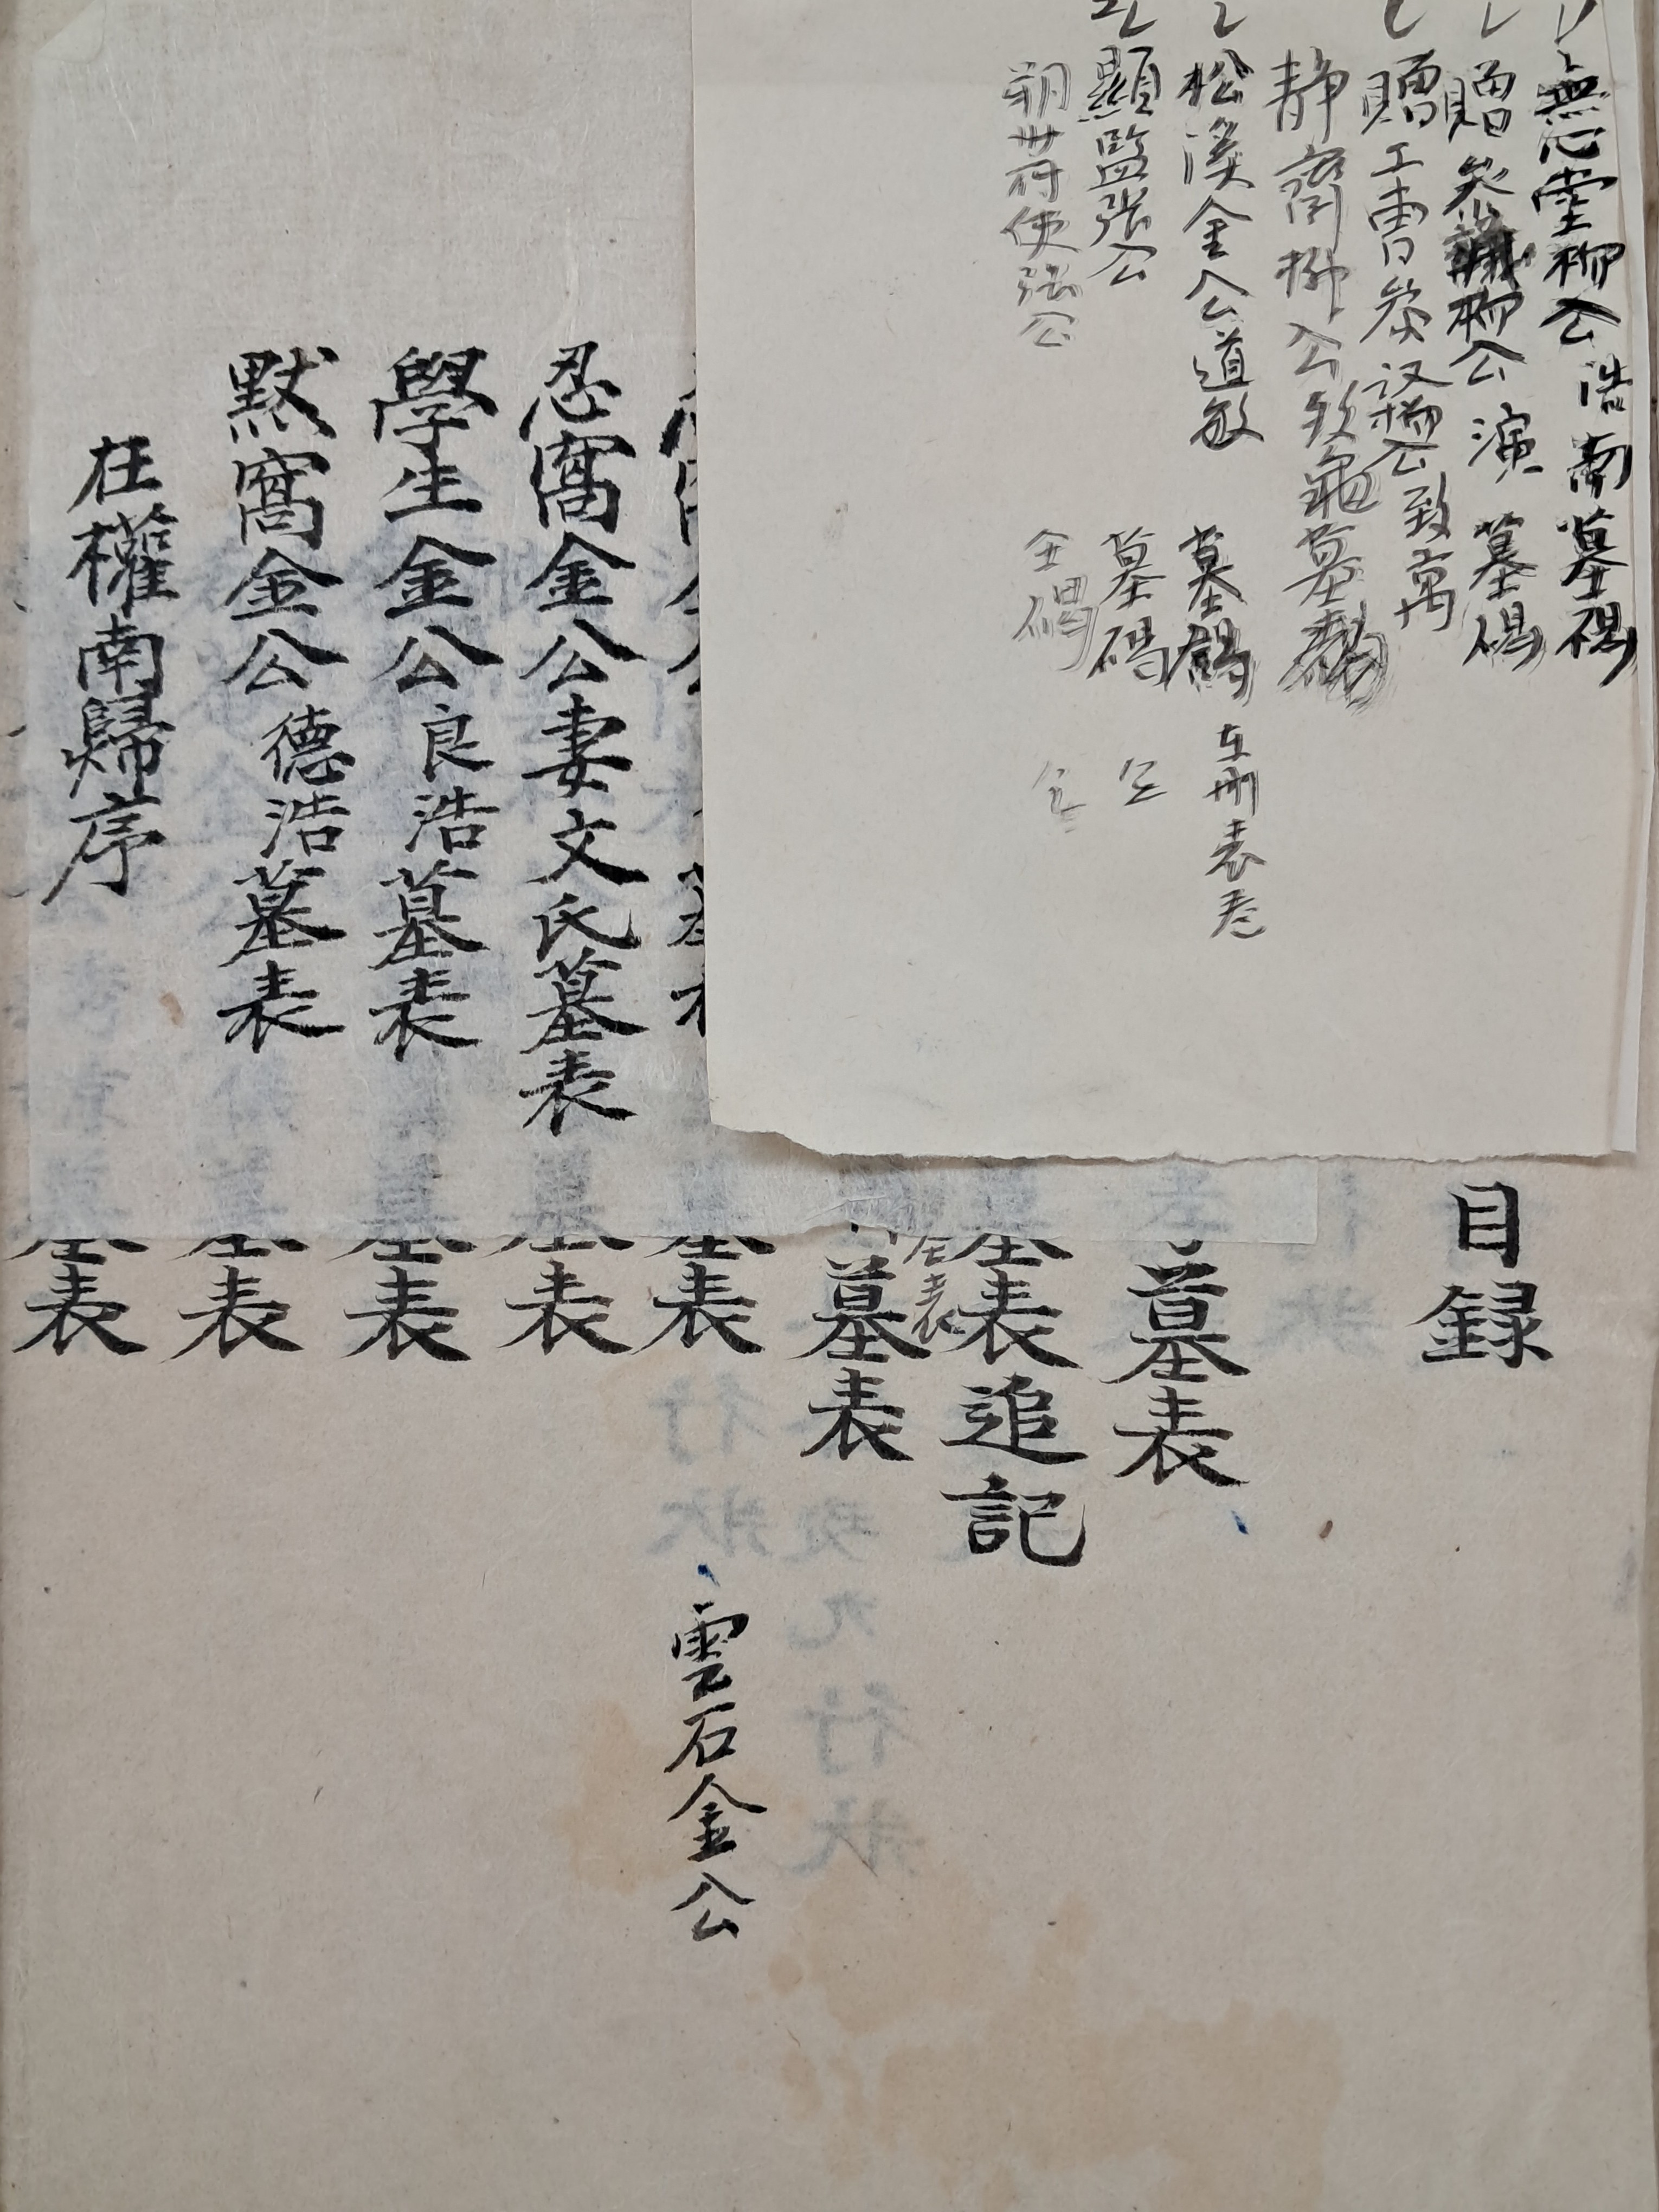 無心堂柳公浩南墓碣
贈參議柳公演墓碣
贈工曹參議柳公致萬
靜齋柳公致龜墓
松溪金公道敏墓碣
顯監張公墓碣仝
府使張公仝碣仝
忍窩金公妻文氏墓表
學生金公良浩墓表
默窩金公德浩墓表
在權南歸序
目録
墓表
墓表追記
墓表
墓表
墓表
墓表
墓表
墓表
雲石金公